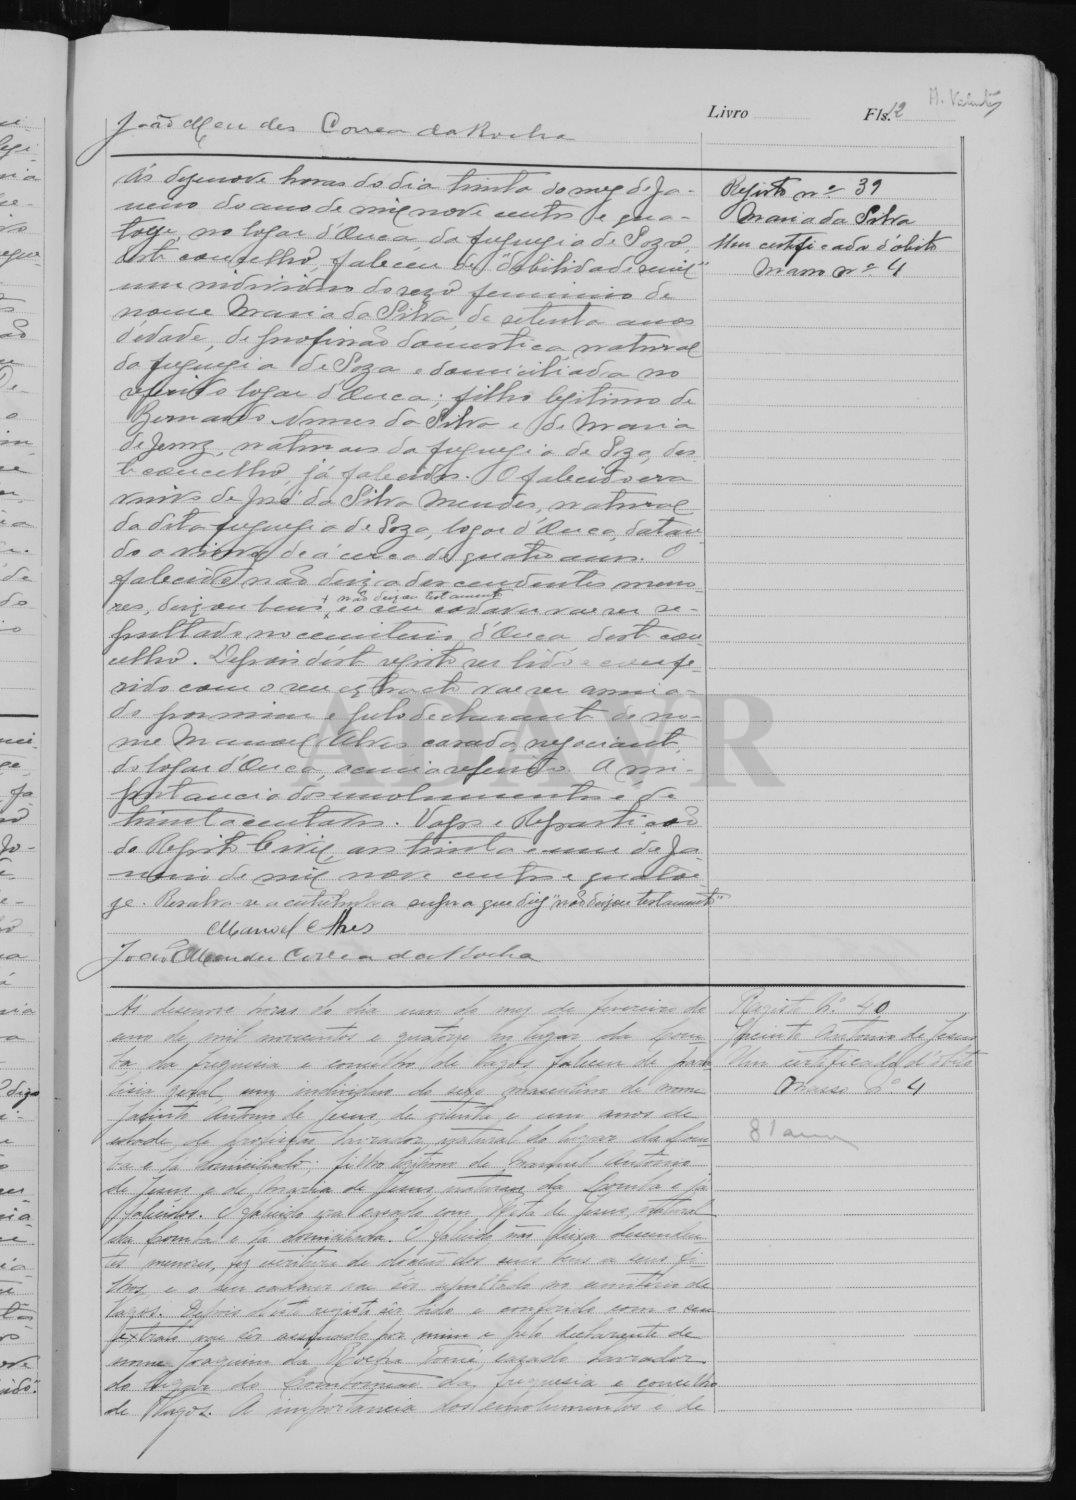 Livro Fls. 12
João Mendes Correa da Rocha
Ás dezenove horas do dia trinta do mez de Ja-
neiro do ano de mil nove centos e qua-
torze, no logar d'Ouca da freguezia de Soza
deste concelho, faleceu de "debilidade senil"
um individuo do sexo feminino de
nome Maria da Silva, de setenta anos
d'edade, de profissão domestica, natural
da freguezia de Soza e domiciliada no
referido logar d'Ouca; filho legitimo de
Bernardo Nunes da Silva e de Maria
de Jesus, naturaes da freguezia de Soza, des-
te concelho, já falecidos. O falecido era
viuvo de José da Silva Mendes, natural
da dita freguezia de Soza, logar d'Ouca, datan-
do a viuvez de á cerca de quatro anos. O
falecido não deixa descendentes meno-
res, deixou bens, + não deixou testamento e o seu cadaver vae ser se-
pultado no cemiterio d'Ouca deste con-
celho. Depois deste registo ser lido e confe-
rido com o seu extracto vae ser assina-
do por mim e pelo declarante de no-
me Manoel Alves casado, negociante,
do logar d'Ouca, acima referido. A im-
portancia dos emolumentos é de
trinta centavos. Vagos e Repartição
do Registo Civil, aos trinta e um de Ja-
neiro de mil nove centos e quator-
ze. Resalva-se a entrelinha supra que diz "não deixou testamento"
Manoel Alves
João Mendes Correa da Rocha
Registo nº 39
Maria da Silva
Um certificado d'obito
Masso nº 4
Ás desenove horas do dia um do mez de fevereiro do
ano de mil novecentos e quatorze no lugar da Lom-
ba da freguesia e concelho de Vagos, faleceu de para-
lisia geral, um individuo do sexo masculino de nome
Jacinto Antonio de Jesus, de oitenta e um anos de
edade, de profissão lavrador, natural do lugar da Lom-
ba e lá domiciliado; filho legitimo de Manuel Antonio
de Jesus e de Maria de Jesus, naturaes da Lomba e já
falecidos. O falecido era casado com Rita de Jesus, natural
da Lomba e lá domiciliada. O falecido não deixa descenden-
tes menores, fez escritura de doação dos seus bens a seus fi-
lhos, e o seu cadaver vae ser sepultado no cemiterio de
Vagos. Depois deste registo ser lido e conferido com o seu
extrato vae ser assinado por mim e pelo declarante de
nome Joaquim da Rocha Tomé, casado lavrador
do lugar do Lombomeão da freguesia e concelho
de Vagos. A importancia dos emolumentos é de
Registo Nº 40
Jacinto Antonio de Jesus
Um certificado d'obito
Masso nº 4
81 anos
ADAVR